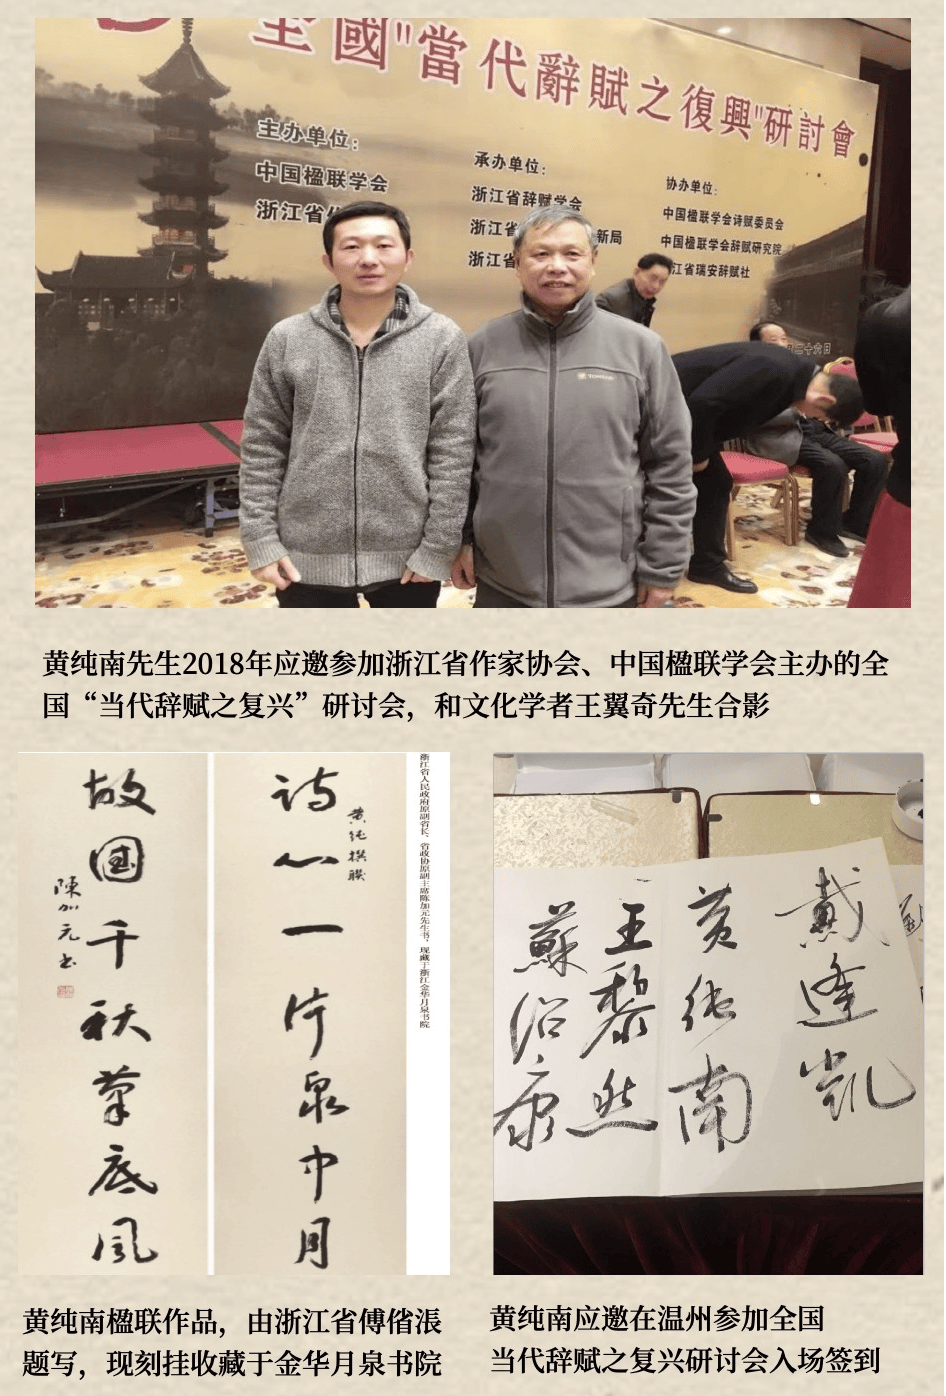 全國"當代辭賦之復興"研討會
主办单位：
中国楹联学会
浙江省作
承办单位：
浙江省辞赋学会
浙江省
新局
浙江省
协办单位：
中国楹联学会诗赋委员会
中国楹联学会辞赋研究院
江省瑞安辞赋社
二十六日
黄纯南先生2018年应邀参加浙江省作家协会、中国楹联学会主办的全
国“当代辞赋之复兴”研讨会，和文化学者王翼奇先生合影
浙江省人民政府原副省长、省政协原副主席陈加元先生书，现藏于浙江金华月泉书院
黄纯撰联
诗心一片泉中月
故国千秋笔底风
陳加元书
戴逢凯
黄纯南
王黎然
蘇沿康
黄纯南楹联作品，由浙江省傅偺漲
题写，现刻挂收藏于金华月泉书院
黄纯南应邀在温州参加全国
当代辞赋之复兴研讨会入场签到